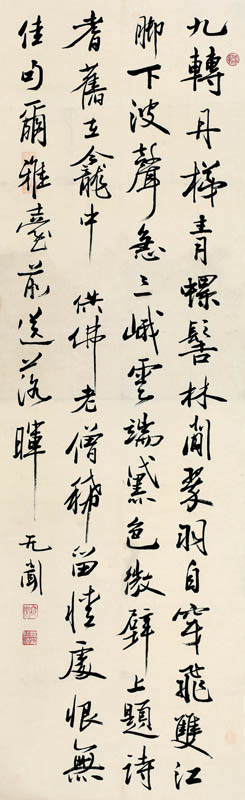 九轉丹梯青螺髻林間翠羽自穿飛雙江
脚下波聲急三峨雲端黛色微壁上題詩
耆舊在龕中供佛老僧稀留情處恨無
佳句爾雅臺前送落暉
无聞